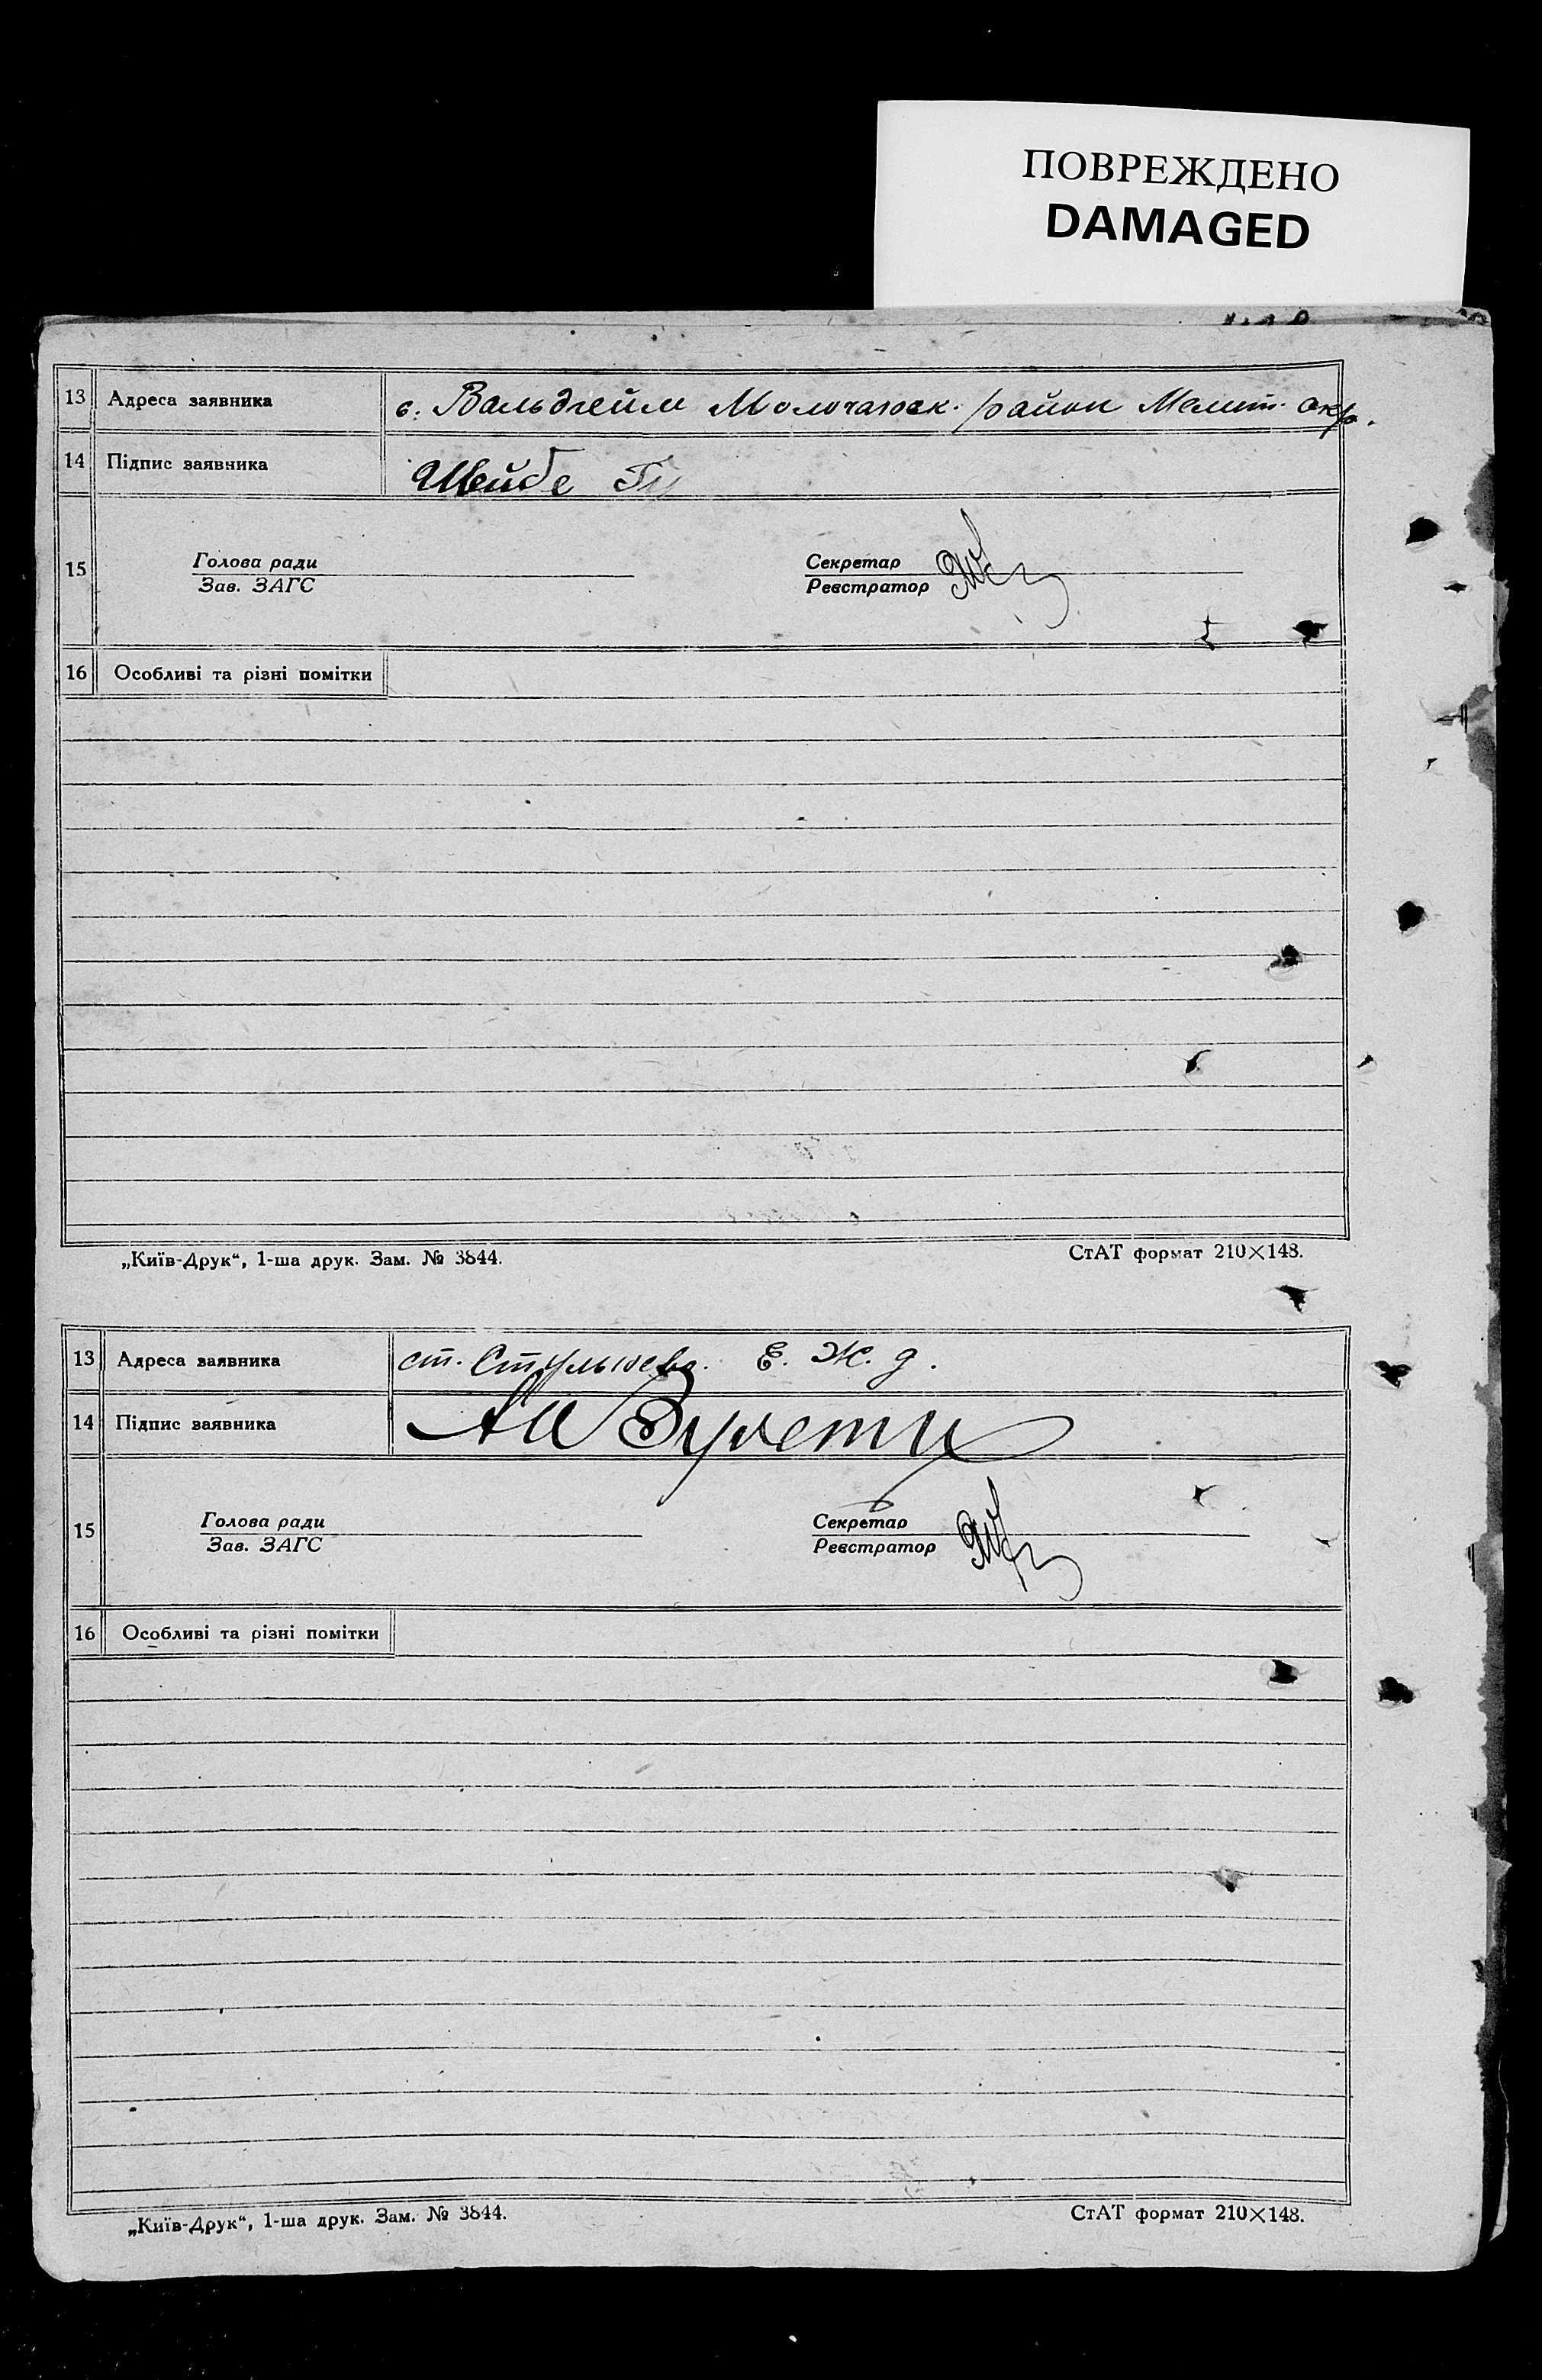 ПОВРЕЖДЕНО
DAMAGED
13 Адреса заявника с. Вальдгейм Молочанск. район Мелит. окр.
14 Підпис заявника
15 Голова ради Секретар
Зав. ЗАГС Реєстратор
16 Особливі та різні помітки
„Київ-Друк“, 1-ша друк. Зам. № 3844. СтАТ формат 210×148.
13 Адреса заявника ст. Стульнево. Е. Ж. д.
14 Підпис заявника
15 Голова ради Секретар
Зав. ЗАГС Реєстратор
16 Особливі та різні помітки
„Київ-Друк“, 1-ша друк. Зам. № 3844. СтАТ формат 210×148.